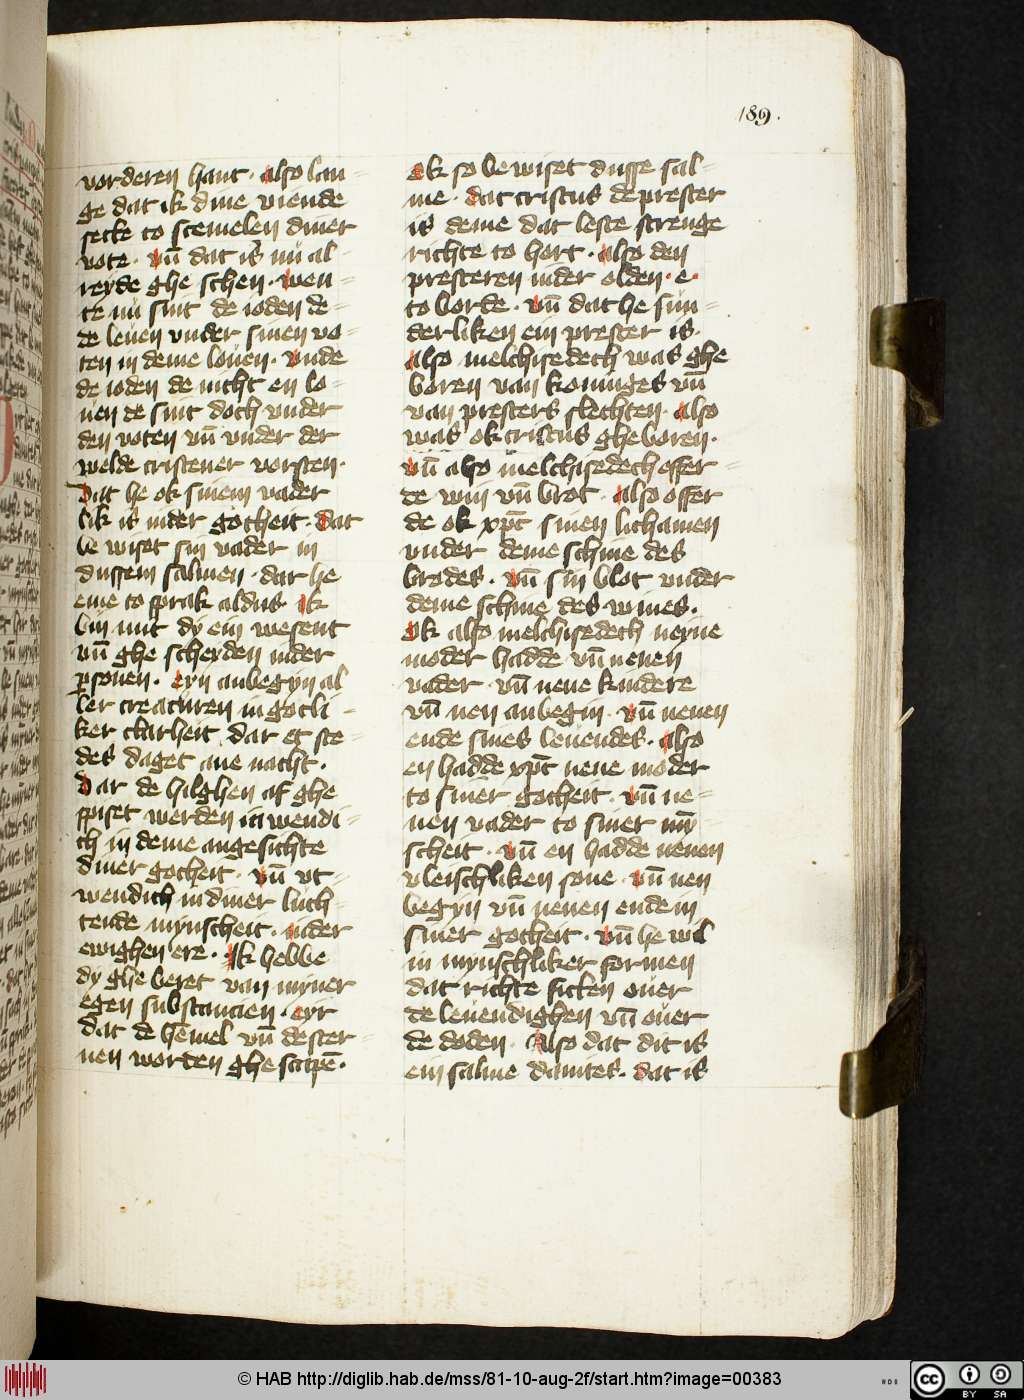 189.
vorderen hant · also lan=
ge dat ik dine viende
sette to scemelen diner
vote · vn̄ dat is nu al=
reyde ghe schen · wen=
te nu sint de ioden de=
de leuen vnder sinen vo=
ten in deme louen · vnde
de ioden de nicht en lo=
uen de sint doch vnder
den voten vn̄ vnder der
welde cristener vorsten ·
Dat he ok sinem vader
lik is in der gotheit · dat
be wiset sin vader in
dussem salmen · dar he
eme to sprak aldus Ik
bin mit dy ein wesent
vn̄ ghe scheyden in der
personen · eyn anbegyn al
ler creaturen in gotli=
ker clarheit dar et ste=
des daget ane nacht ·
Dar de hilghen af ghe
spiset werden in wendi=
ch in deme angesichte
diner gotheit · vn̄ vt=
wendich in diner luch=
tende mynscheit · in der
ewighen ere · Ik hebbe
dy ghe beret van myner
egen substancien · eyr
dat de hemel vn̄ de ster=
nen worden ghe scapē ·
Ok so be wiset dusse sal=
me · dat cristus de prester
is deme dat leste strenge
richte to hort · also den
presteren in der olden · e ·
to borde · vn̄ dat he sun=
derliken ein prester is ·
Also melchisedech was ghe
boren van koninges vn̄
van presters slechten · also
was ok cristus gheboren ·
vn̄ also melchisedech offer=
de win vn̄ brot · also offer
de ok xp̄c sinen lichamen
vnder deme schine des
brodes · vn̄ sin blot vnder
deme schine des wines ·
Ok also melchisedech neyne
moder hadde vn̄ nenen
vader · vn̄ nene kindere
vn̄ nen anbegin · vn̄ nenen
ende sines leuendes · also
en hadde xp̄c nene moder
to siner gotheit · vn̄ ne=
nen vader to siner mȳ=
scheit · vn̄ en hadde nenen
vleischliken sone · vn̄ nen
begyn vn̄ nenen ende in
siner gotheit · vn̄ he wil
in mynschliker formen
dat richte sitten ouer
de leuendighen vn̄ ouer
de doden · Also dat dit is
ein salme dauites · dat is
© HAB http://diglib.hab.de/mss/81-10-aug-2f/start.htm?image=00383
cc BY SA